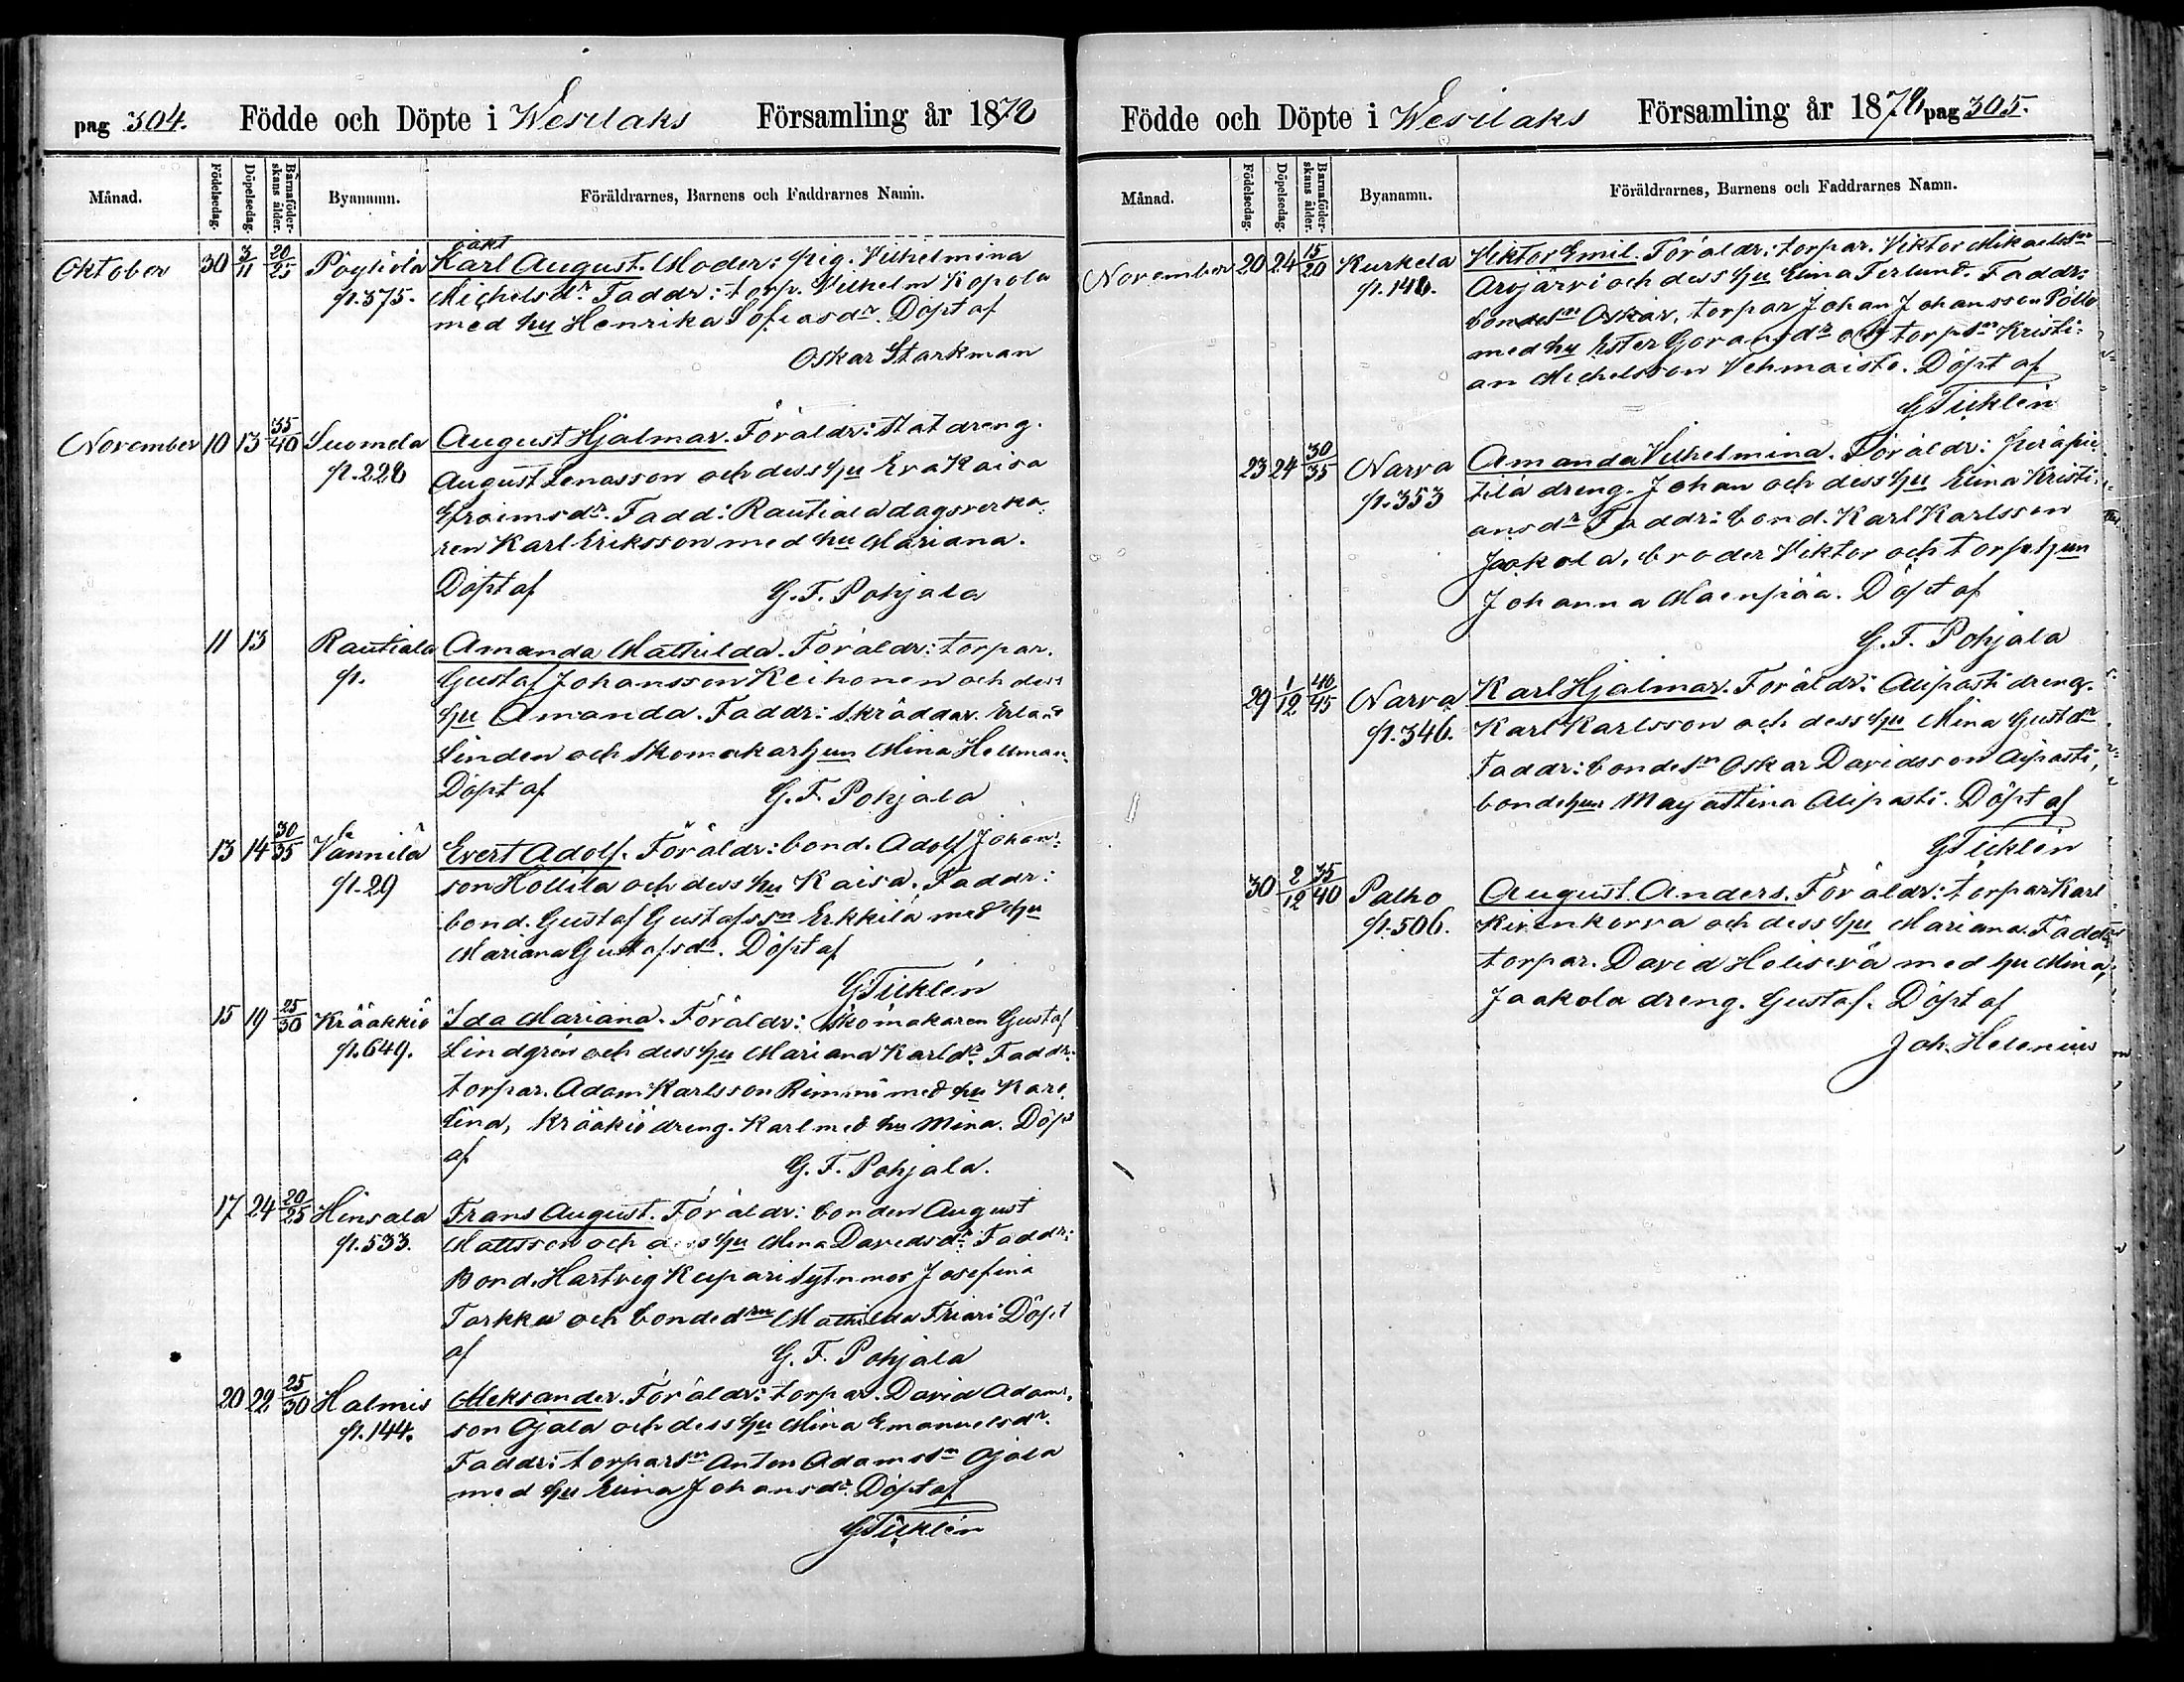 pag 304. Födde och Döpte i Wesilaks Församling år 1878
Månad. Födelsedag. Döpelsedag. Barnaföderskans ålder. Byanamn. Föräldrarnes, Barnens och Faddrarnes Namn.
oäkt
Oktober 30 3/11 20/25 Pöyhölä Karl August. Moder: pig. Vilhelmina
p. 375. Michelsdr. Faddr: torp. Vilhelm Kopola
med hu Henrika Sofiasdr. Döpt af
Oskar Starkman
November 10 13 35/40 Suomela August Hjalmar. Föräldr: statdreng.
p. 228 August Lenasson och dess hu Eva Kaisa
Efraimsdr. Fadd: Rautiala dagsverka-
ren Karl Eriksson med hu Mariana.
Döpt af G. F. Pohjala
11 13 Rautiala Amanda Mathilda. Föräldr: torpar.
p. Gustaf Johansson Keihonen och dess
hu Amanda. Faddr: Skräddar. Erland
Linden och Skomakarhun Mina Hellman.
Döpt af G. F. Pohjala
13 14 30/35 Vännilä Evert Adolf. Föräldr: bond. Adolf Johan-
p. 29 son Hollila och dess hu Kaisa. Faddr:
bond. Gustaf Gustafssn Erkkilä med hu
Mariana Gustafsdr. Döpt af
G Ticklén
15 19 25/30 Krääkkiö Ida Mariana. Föräldr: Skomakaren Gustaf
p. 649. Lindgrén och dess hu Mariana Karldr. Faddr:
torpar. Adam Karlsson Rimmi med hu Karo-
lina, Krääkiö dreng. Karl med hu Mina. Döpt
af G. F. Pohjala.
17 24 20/25 Hinsala Frans August. Föräldr: bonden August
p. 533. Mattsson och dess hu Mina Davidsdr. Faddr:
Bond. Hartvig Kupari Sytnmor Josefina
Torkku och bondedrn Mathilda Friari Döpt
af G. F. Pohjala
20 22 25/30 Halmis Aleksander. Föräldr: torpar. David Adams-
p. 144. son Ojala och dess hu Mina Emanuelsdr.
Faddr: torparsn Anton Adamssn Ojala
med hu Eina Johansdr. Döpt af
G Ticklén
Födde och Döpte i Wesilaks Församling år 1878 pag 305.
Månad. Födelsedag. Döpelsedag. Barnaföderskans ålder. Byanamn. Föräldrarnes, Barnens och Faddrarnes Namn.
November 20 24 15/20 Kurkela Viktor Emil. Föräldr: torpar. Viktor Mikaelssn
p. 148. Arvjärvi och dess hu Eina Ferlund. Faddr:
bondesn Oskar, torpar Johan Johansson Pöllö
med hu Ester Goransdr och torpsn Kristi-
an Michelsson Vehmaisto. Döpt af
G Ticklén
23 24 30/35 Narva Amanda Vilhelmina. Föräldr: Peräpie-
p. 353 tilä dreng. Johan och dess hu Eina Kristi-
ansdr Faddr: bond. Karl Karlsson
Jaakola, broder Viktor och torphun
Johanna Mäenpää. Döpt af
G. F. Pohjala
29 1/12 40/45 Narva Karl Hjalmar. Föräldr: Alipasti dreng.
p. 346. Karl Karlsson och dess hu Mina Gustdr
Faddr: bondesn Oskar Davidsson Alipasti,
bondehun Majastina Alipasti. Döpt af
G Ticklén
30 2/12 35/40 Palho August Anders. Föräldr: torpar Karl
p. 506. Kivenkorva och dess hu Mariana. Faddr:
torpar. David Holiserä med hu Mina,
Jaakola dreng. Gustaf. Döpt af
Joh. Helenius